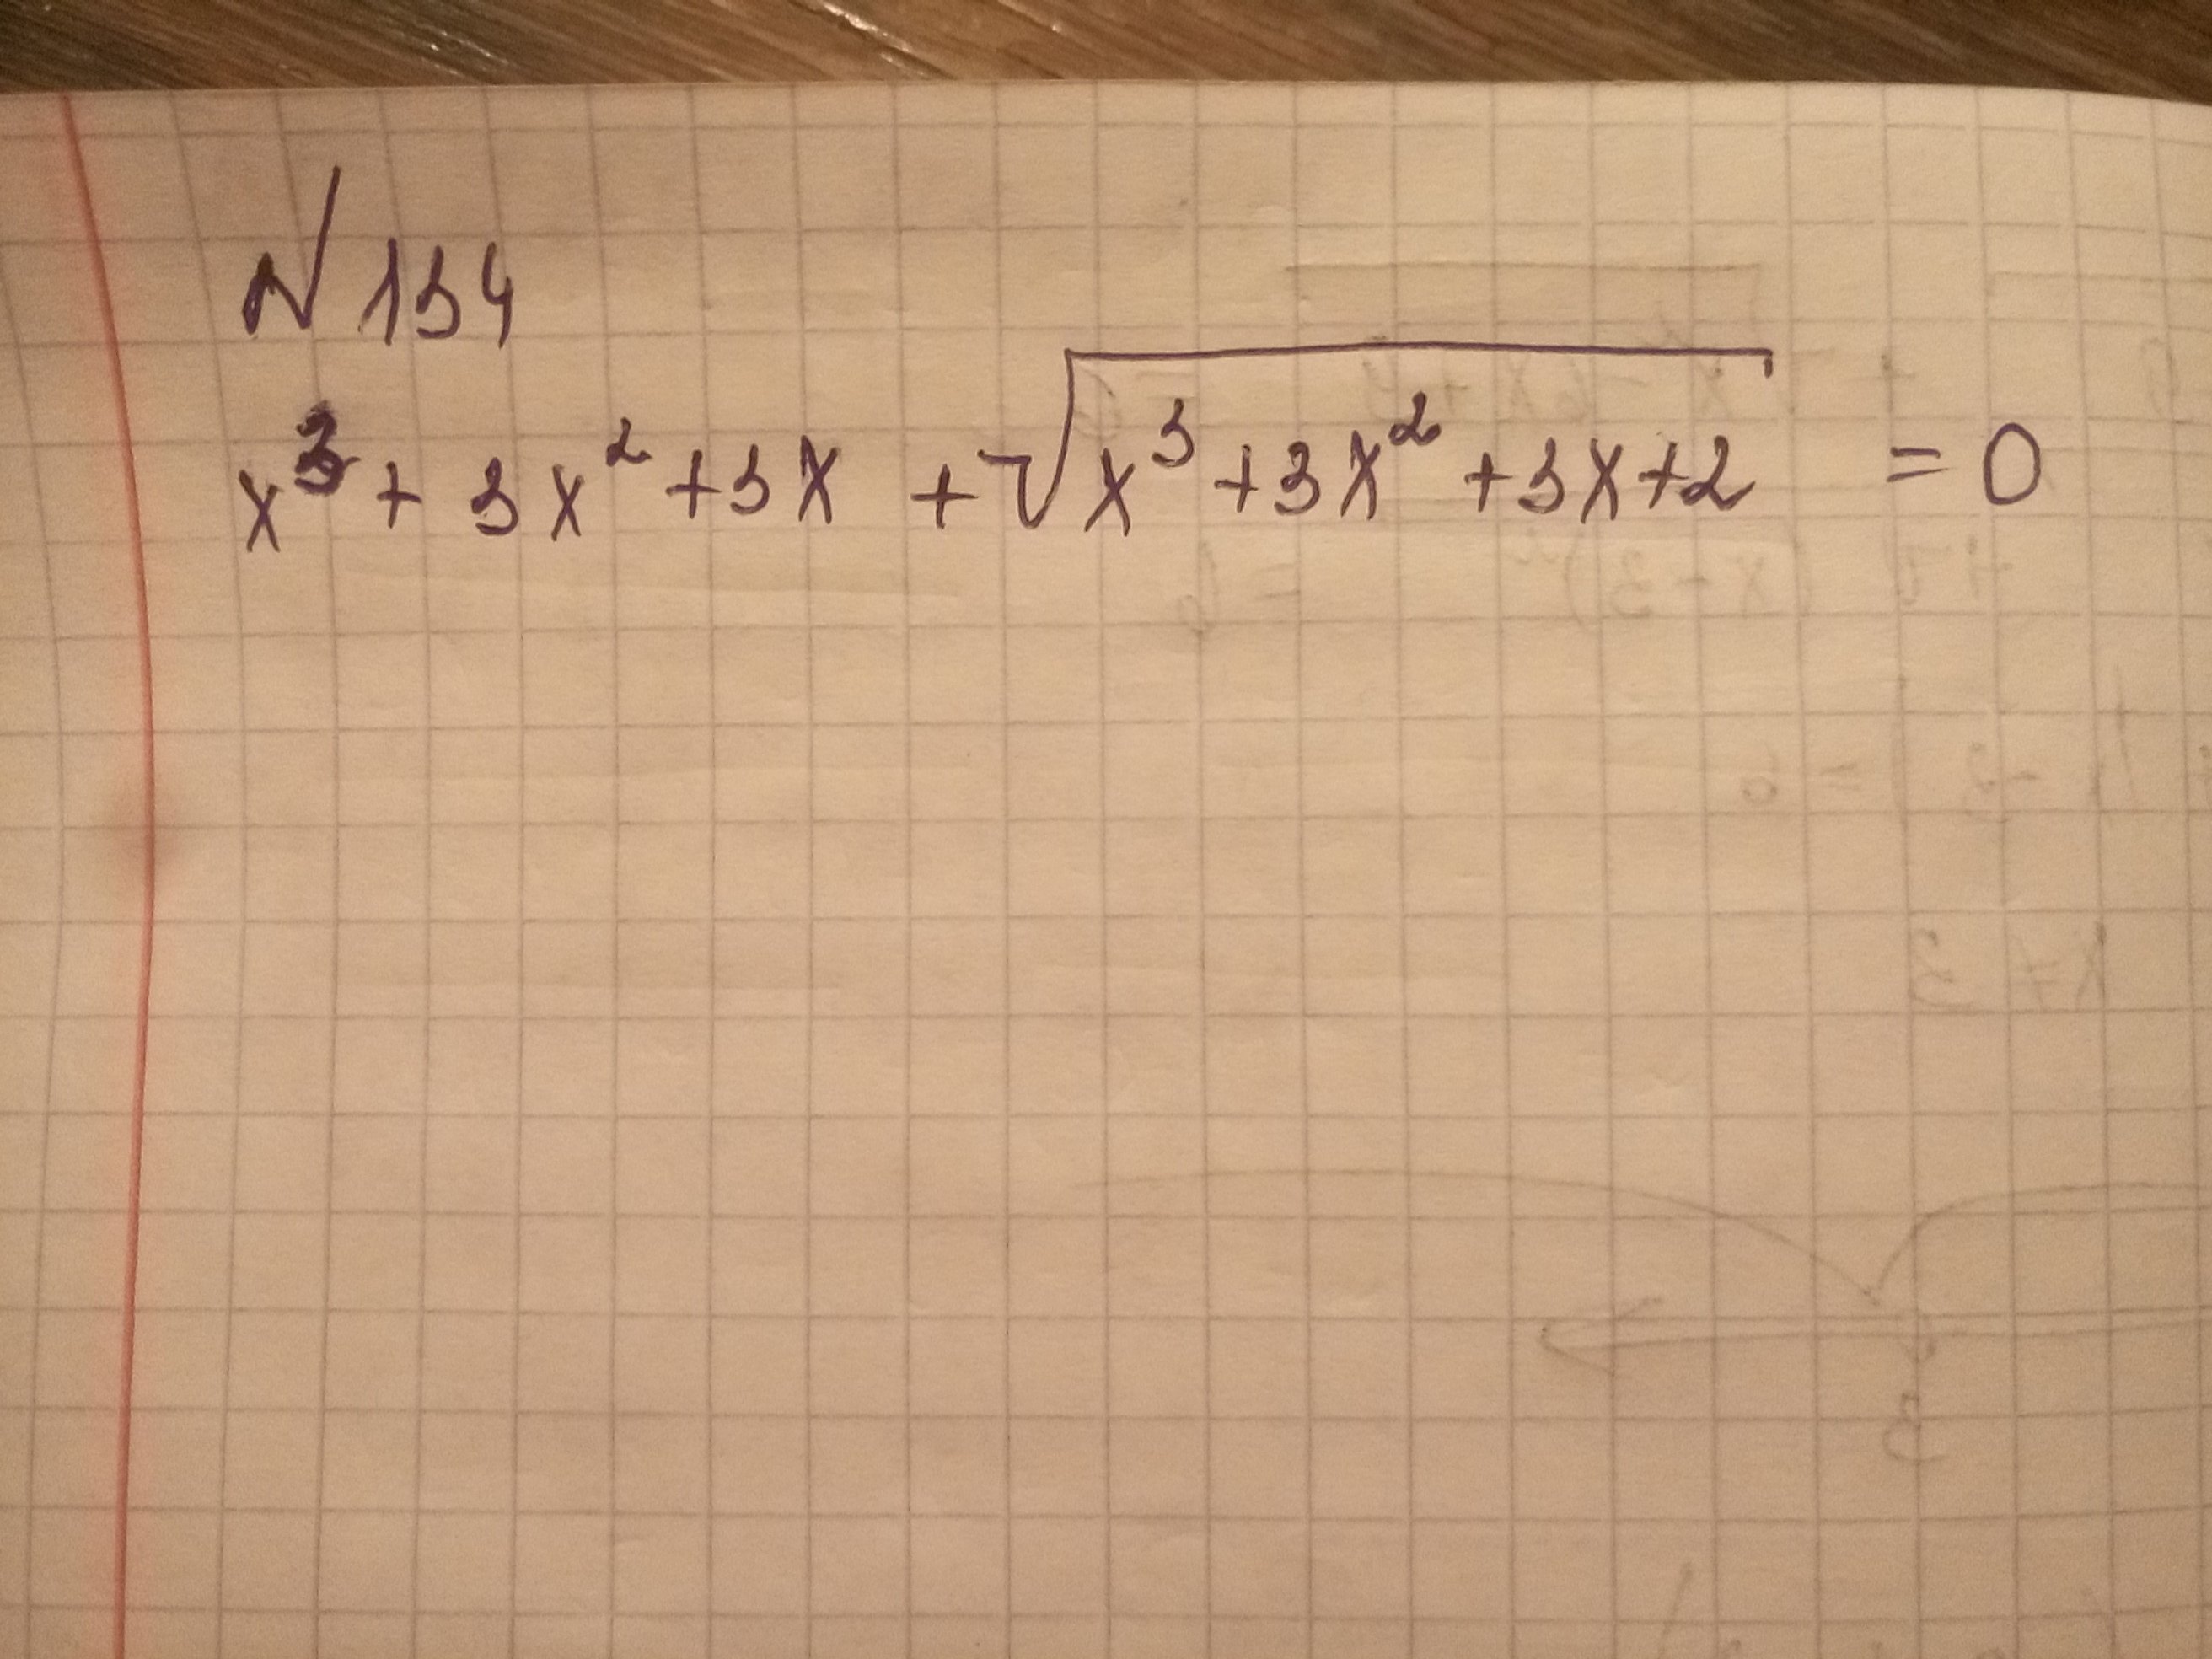 № 134
x³ + 3x² + 3x + √(x³ + 3x² + 3x + 2) = 0